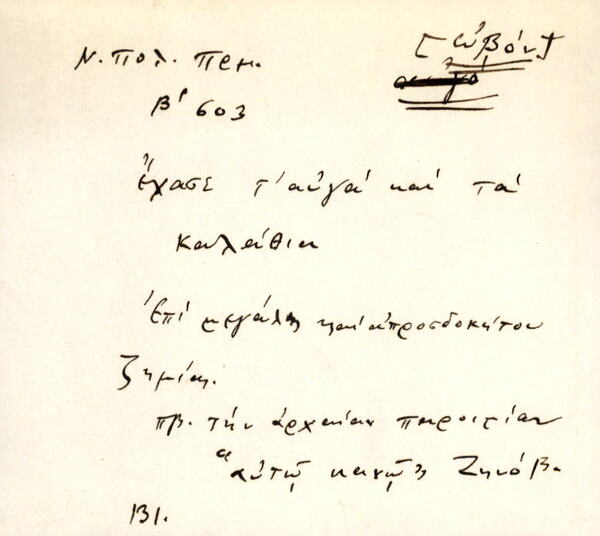 Ν. Πολ. Παρ.
[ᾠβόν]
Β' 603
Ἔχασε τ' αὐγά καί τά
καλάθια
Ἐπί μεγάλης καί ἀπροσδοκήτου
ζημίας.
πβ. τήν ἀρχαίαν παροιμίαν
αὐτῷ κανῷ Ζηνόβ.
131.